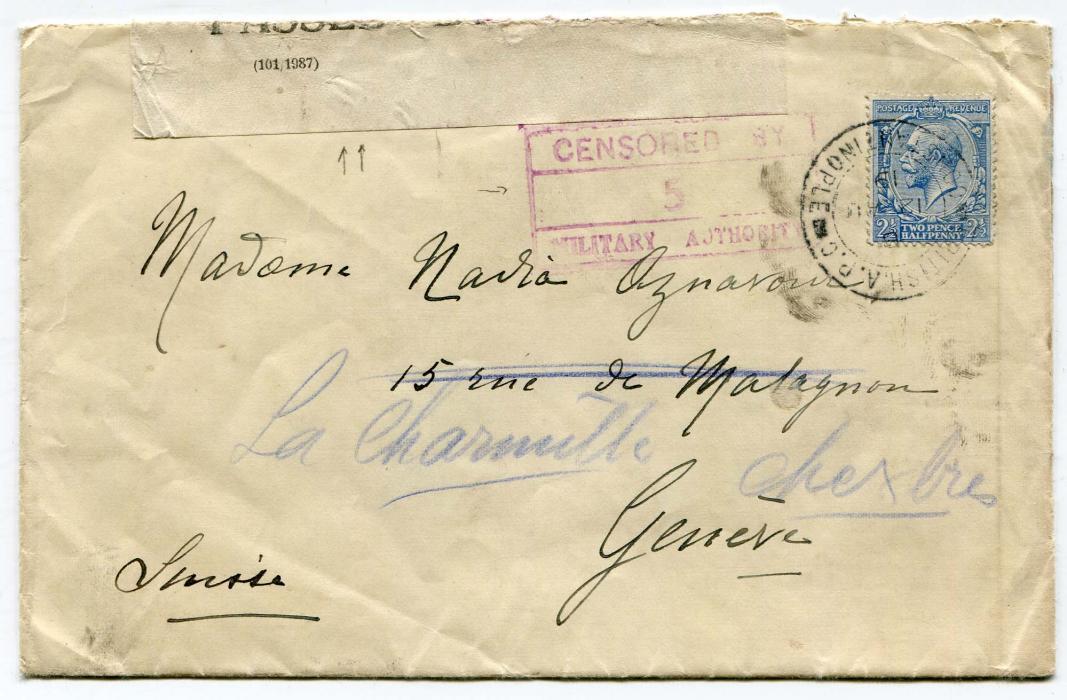 PASSED
(101/1987)
CENSORED BY
5
MILITARY AUTHORITY
POSTAGE REVENUE
2½ TWO PENCE HALFPENNY 2½
BRITISH.A.P.O.
Madame Nadia Aznavour
15 rue de Malagnou
La Charmille Chexbres
Genève
Suisse